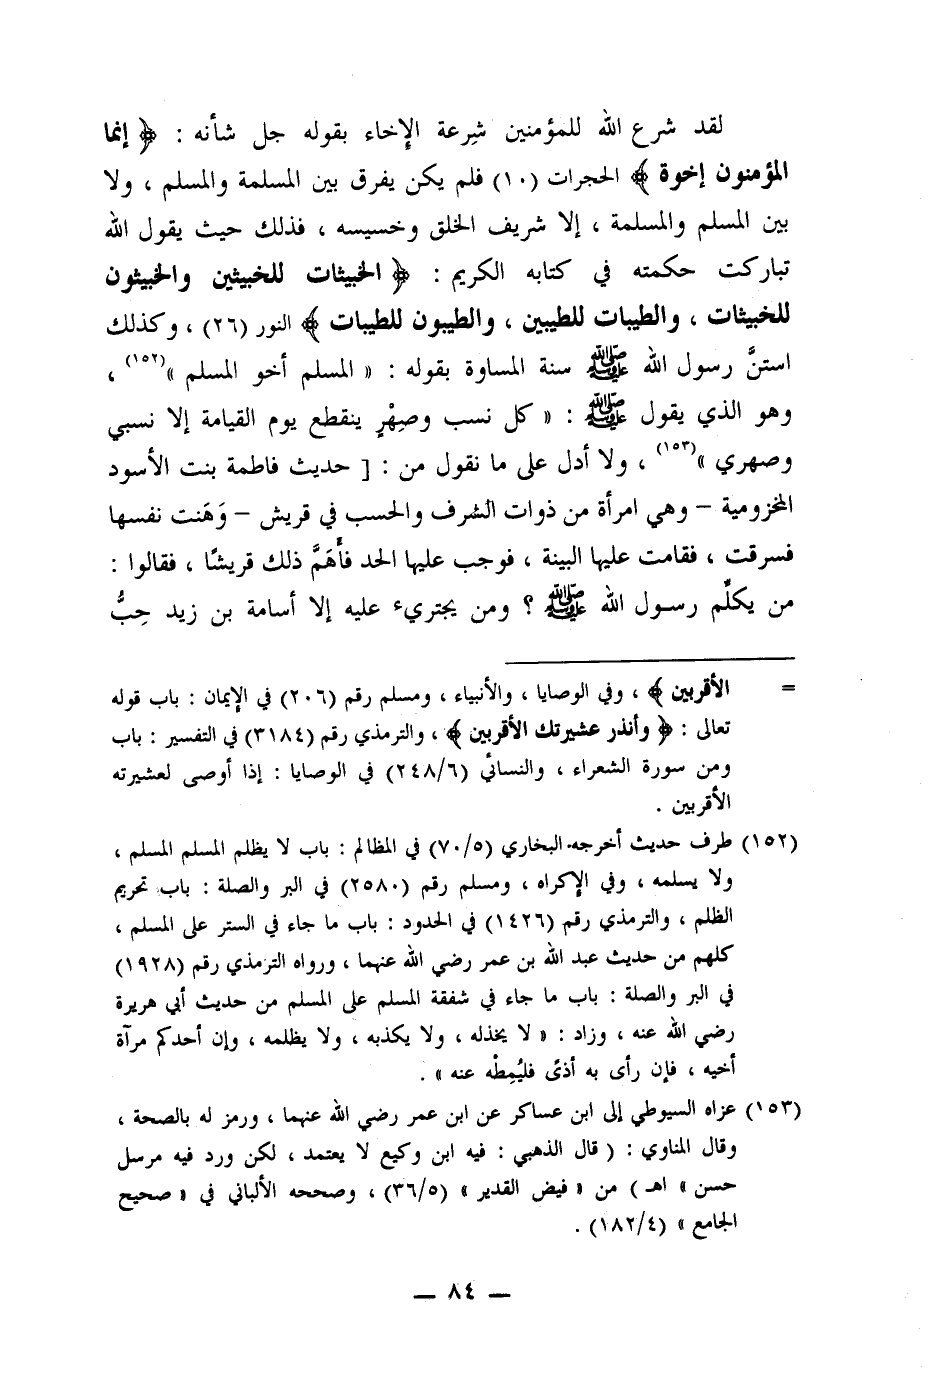 لقد شرع الله للمؤمنين شِرعة الإخاء بقوله جل شأنه : ﴿ إنما
المؤمنون إخوة ﴾ الحجرات (١٠) فلم يكن يفرق بين المسلمة والمسلم ، ولا
بين المسلم والمسلمة ، إلا شريف الخلق وخسيسه ، فذلك حيث يقول الله
تباركت حكمته في كتابه الكريم : ﴿ الخبيثات للخبيثين والخبيثون
للخبيثات ، والطيبات للطيبين ، والطيبون للطيبات ﴾ النور (٢٦) ، وكذلك
استنَّ رسول الله ﷺ سنة المساوة بقوله : « المسلم أخو المسلم »(١٥٢) ،
وهو الذي يقول ﷺ : « كل نسب وصِهْرٍ ينقطع يوم القيامة إلا نسبي
وصهري »(١٥٣) ، ولا أدل على ما نقول من : [ حديث فاطمة بنت الأسود
المخزومية – وهي امرأة من ذوات الشرف والحسب في قريش – وَهَنت نفسها
فسرقت ، فقامت عليها البينة ، فوجب عليها الحد فأَهَمَّ ذلك قريشًا ، فقالوا :
من يكلِّم رسول الله ﷺ ؟ ومن يجتريء عليه إلا أسامة بن زيد حِبُّ
= الأقربين ﴾ ، وفي الوصايا ، والأنبياء ، ومسلم رقم (٢٠٦) في الإيمان : باب قوله
تعالى : ﴿ وأنذر عشيرتك الأقربين ﴾ ، والترمذي رقم (٣١٨٤) في التفسير : باب
ومن سورة الشعراء ، والنسائي (٢٤٨/٦) في الوصايا : إذا أوصى لعشيرته
الأقربين .
(١٥٢) طرف حديث أخرجه البخاري (٧٠/٥) في المظالم : باب لا يظلم المسلم المسلم ،
ولا يسلمه ، وفي الإكراه ، ومسلم رقم (٢٥٨٠) في البر والصلة : باب تحريم
الظلم ، والترمذي رقم (١٤٢٦) في الحدود : باب ما جاء في الستر على المسلم ،
كلهم من حديث عبد الله بن عمر رضي الله عنهما ، ورواه الترمذي رقم (١٩٢٨)
في البر والصلة : باب ما جاء في شفقة المسلم على المسلم من حديث أبي هريرة
رضي الله عنه ، وزاد : « لا يخذله ، ولا يكذبه ، ولا يظلمه ، وإن أحدكم مرآة
أخيه ، فإن رأى به أذىً فليُمِطْه عنه » .
(١٥٣) عزاه السيوطي إلى ابن عساكر عن ابن عمر رضي الله عنهما ، ورمز له بالصحة ،
وقال المناوي : ( قال الذهبي : فيه ابن وكيع لا يعتمد ، لكن ورد فيه مرسل
حسن » اهـ ) من « فيض القدير » (٣٦/٥) ، وصححه الألباني في « صحيح
الجامع » (١٨٢/٤) .
— ٨٤ —